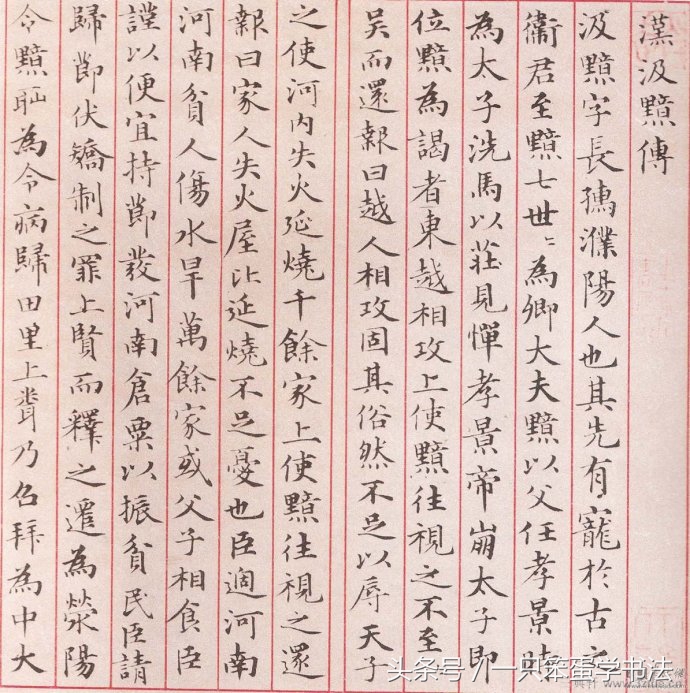 漢汲黯傳
汲黯字長孺濮陽人也其先有寵於古之
衛君至黯七世〻為卿大夫黯以父任孝景時
為太子洗馬以莊見憚孝景帝崩太子即
位黯為謁者東越相攻上使黯往視之不至
吳而還報曰越人相攻固其俗然不足以辱天子
之使河内失火延燒千餘家上使黯往視之還
報曰家人失火屋比延燒不足憂也臣過河南
河南貧人傷水旱萬餘家或父子相食臣
謹以便宜持節發河南倉粟以振貧民臣請
歸節伏矯制之罪上賢而釋之遷為滎陽
令黯恥為令病歸田里上聞乃召拜為中大
头条号 / 一只笨蛋学书法